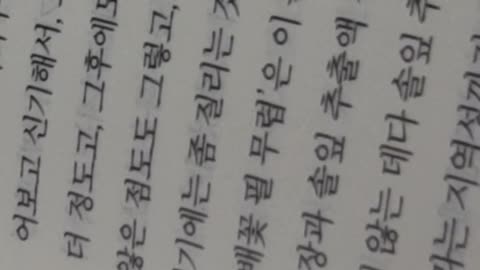 어보고 신기해서,
더 정도고, 그후에도
않은 점도도 그렇고,
기에는 좀 질리는
배꽃 필 무렵'은 이
장과 솔잎 추출액
않는 데다 솔잎 추
는 지역 성